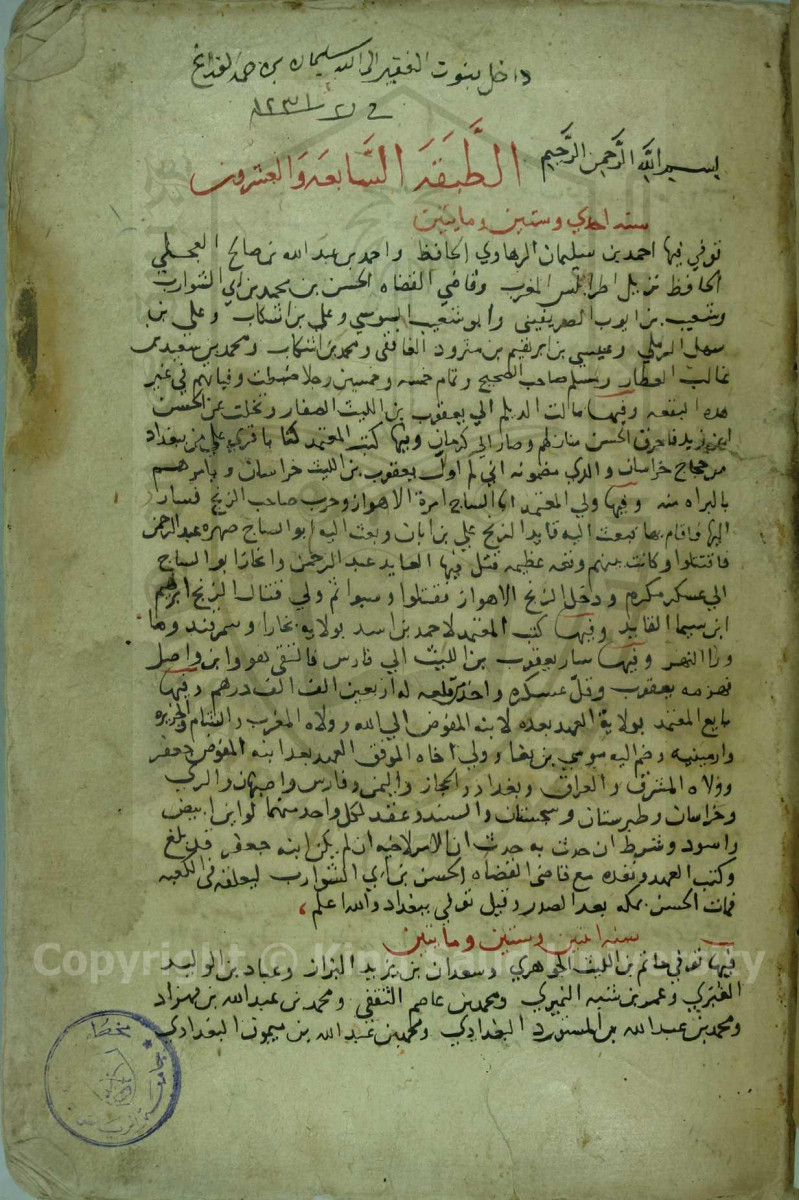 داخل بنوت الفقير الى الله سليمان بن حمد
في ١٢٣١
بسم الله الرحمن الرحيم الطبقة السابعة والعشرون
سنة احدي وستين ومايتين
توفي فيها احمد بن سليمان الرهاوي الحافظ واحمد بن عبد الله بن صالح العجلي
الحافظ نزيل اطرابلس المغرب وقاضي القضاه الحسن بن محمد بن ابي الشوارب
وشعيب بن ايوب الصريفيني وابو شعيب السوسي وعلي بن اشكاب وعلي بن
سهل الرملي وعيسي بن ابرهيم بن مثرود الغافقي ومحمد بن اشكاب ومحمد بن سعيد بن
غالب العطار ومسلم صاحب الصحيح وتمام خمسه وخمسين رجلا ضبطت وفياتهم في غير
هذه البقعه وفيها مالت الديلم الي يعقوب بن الليث الصفار وتخلت عن الحسن
ابن زيد فاحرق الحسن منازلهم وصار الي كرمان وفيها كتب المعتمد كتابا قري علي من ببغداد
من حجاج خراسان والري مضمونه اني لم اول يعقوب بن الليث خراسان ويامرهم
بالبراه منه وفيها ولي المعتمد ابا الساج امرة الاهواز وحرب صاحب الزنج فسار
اليها فاقام بها فبعث اليه قايد الزنج علي بن ابان وبعث اليه ابو الساج صهره عبد الرحمن
فاقتتلوا وكانت بينهم وقعه عظيمه قتل فيها القايد عبد الرحمن وانحاز ابو الساج
الي عسكر مكرم ودخل الزنج الاهواز فقتلوا وسبوا ثم ولي قتال الزنج ابرهيم
ابن سيما القايد وفيها كتب المعتمد لاحمد بن اسد بولاية بخارا وسمرقند وما
ورا النهر وفيها سار يعقوب بن الليث الي فارس فالتقي هو وابن واصل
فهزمه يعقوب وفل عسكره واخذ من قلعه له اربعين الف الف درهم وفيها
بايع المعتمد بولاية العهد بعده لابنه المفوض الي الله وولاه المغرب والشام والجزيره
وارمينيه وضم اليه موسي بن بغا وولي اخاه الموفق العهد بعد ابنه المفوض جعفر
وولاه المشرق والعراق وبغداد والحجاز واليمن وفارس واصبهان والري
وخراسان وطبرستان وسجستان والسند وعقد لكل واحد منهما لواين ابيض
واسود وشرط ان حدث به حدث ان الامر لاخيه ان لم يكن ابنه جعفر قد بلغ
وكتب العهد ونفذه مع قاضي القضاه الحسن بن ابي الشوارب ليعلقه في الكعبه
فمات الحسن بمكه بعد الصدر وقيل توفي ببغداد والله اعلم
سنة اثنتين وستين ومايتين
فيها توفي حاتم بن الليث الجوهري وسعدان بن يزيد البزاز وعباد بن الوليد
الغبري وعمر بن شبه النميري ومحمد بن عاصم الثقفي ومحمد بن عبد الله بن بهزاد
ومحمد بن عبد الله بن المستورد البغدادي ومحمد بن عبد الله بن ميمون البغدادي
Copyright © King Saud University